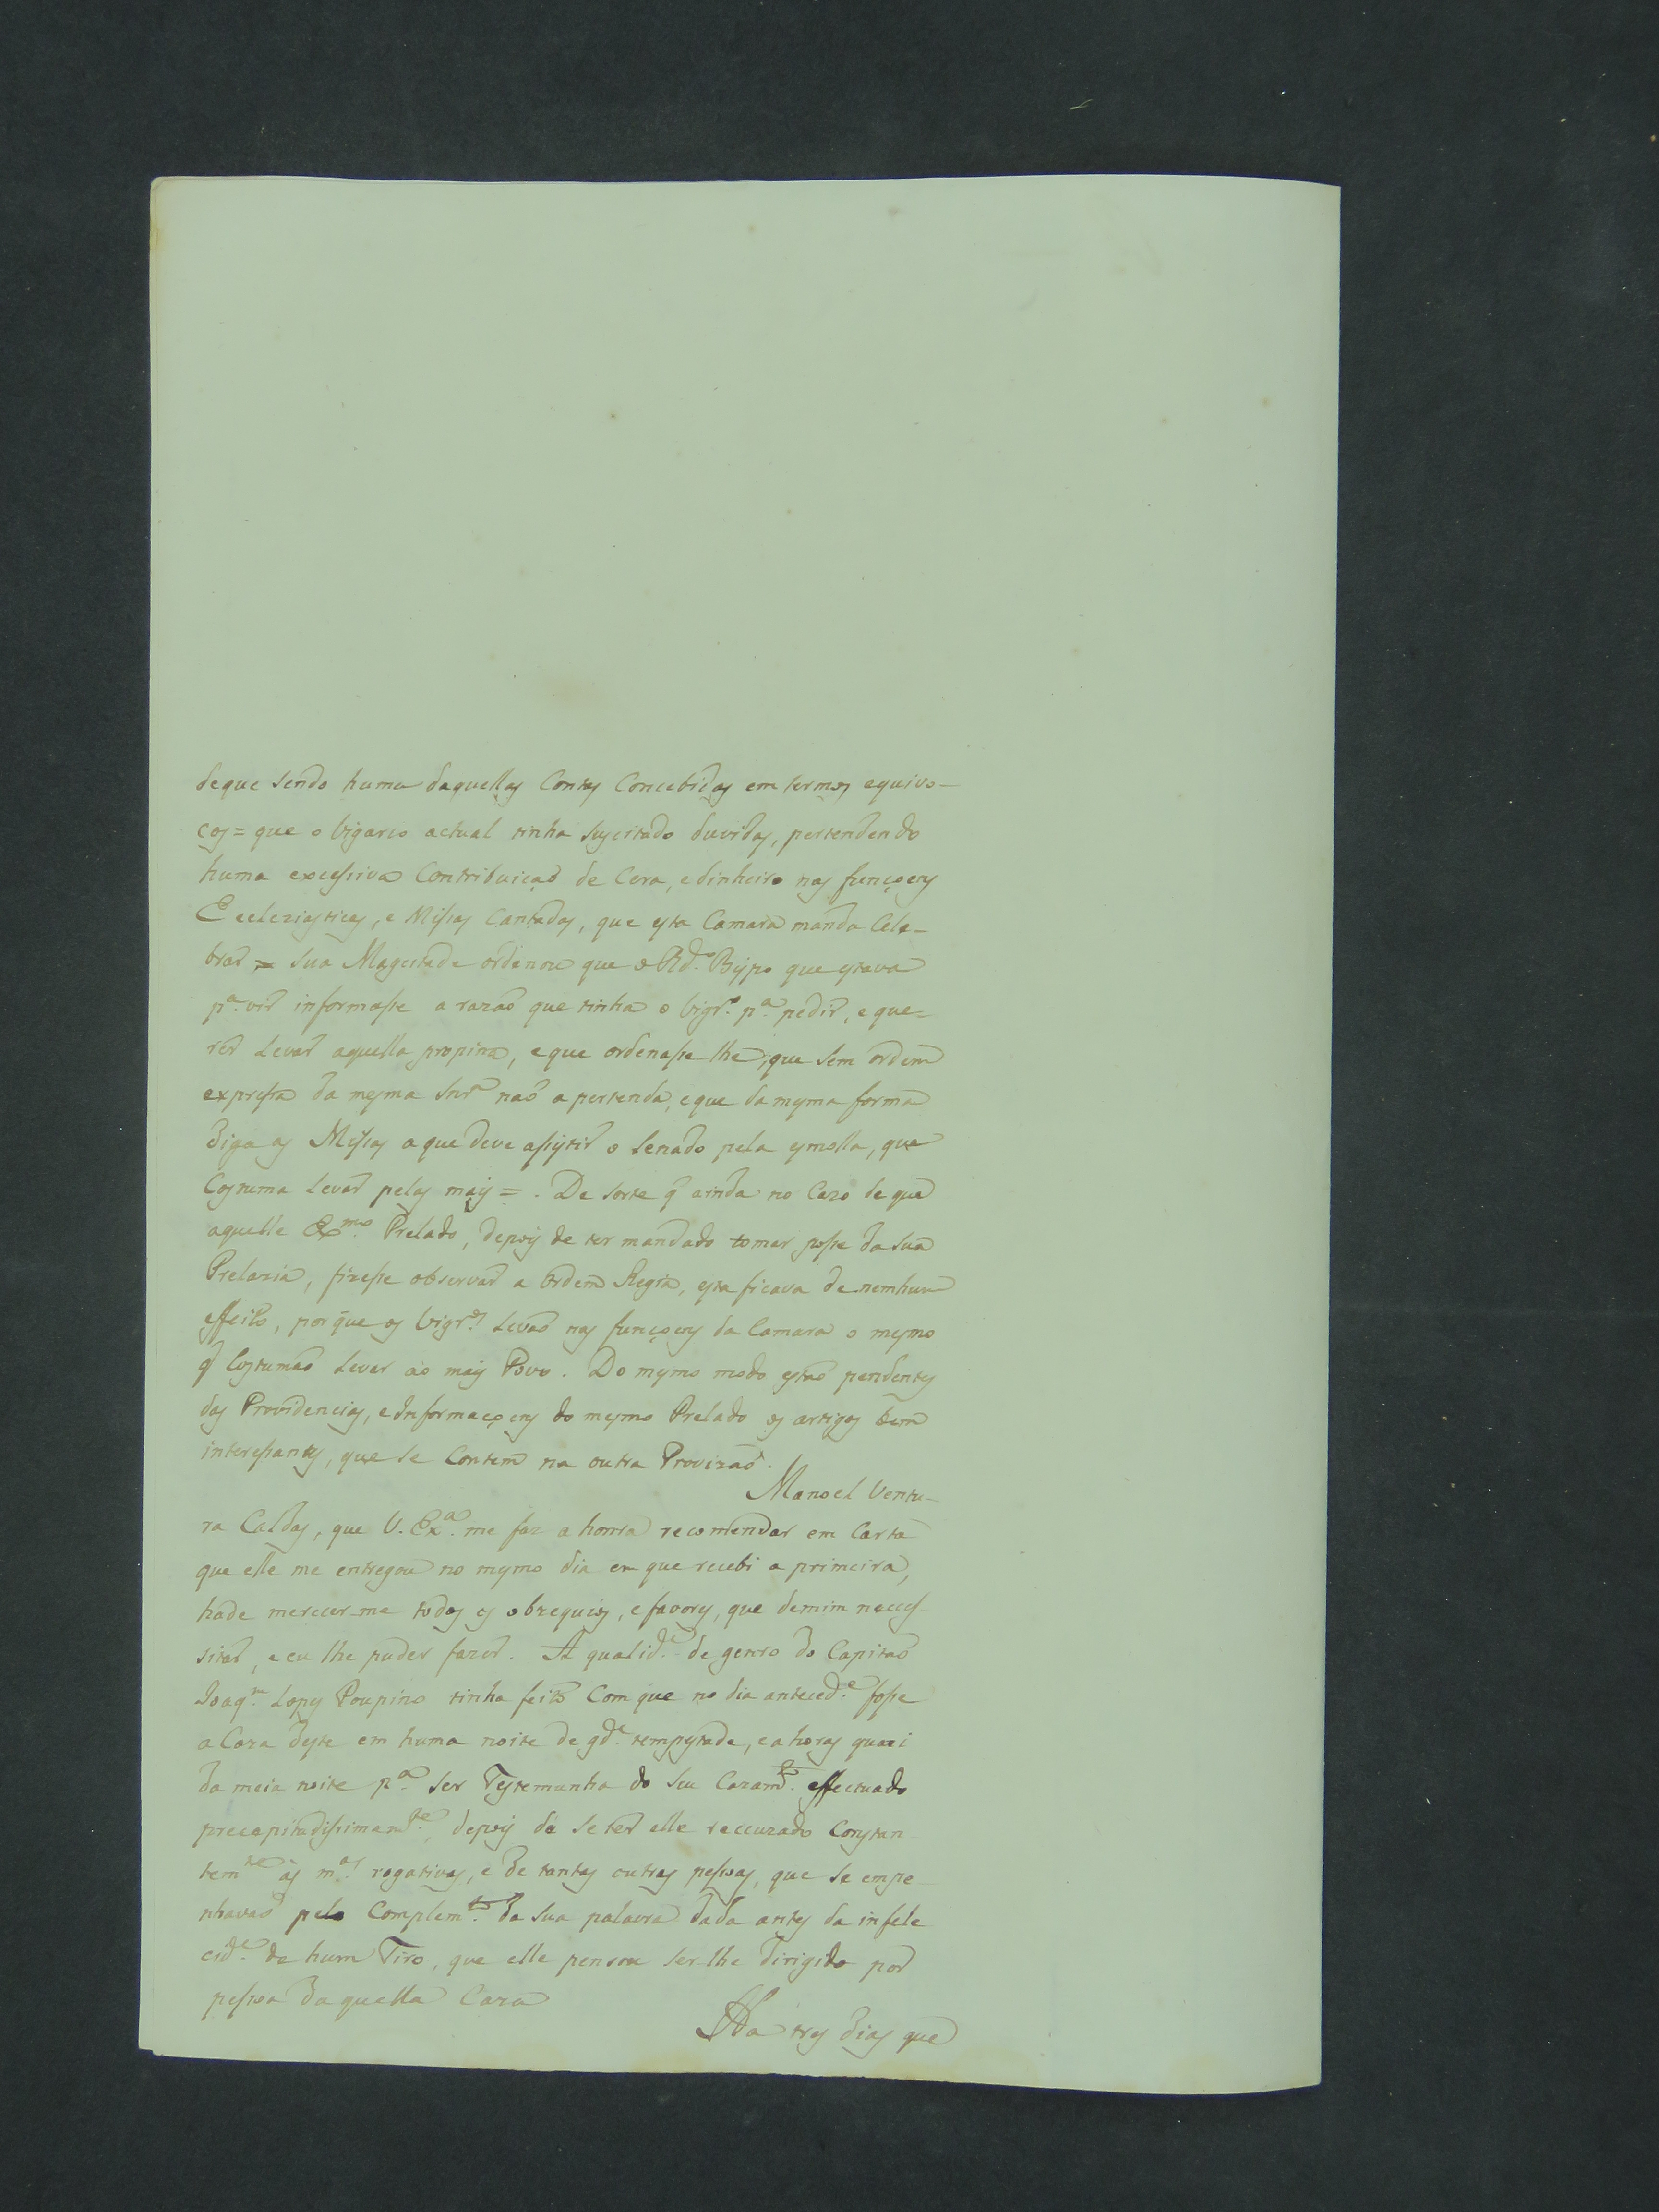 deque sendo huma daquellas Contas Concebidas em termos equivo-
cos = que o Vigario actual tinha suscitado duvidas, pertendendo
huma excessiva Contribuiçaõ de Cera, e dinheiro nas funçoens
Eccleziasticas, e Missas Cantadas, que esta Camara manda Cele-
brar = Sua Magestade ordenou que o Rd.º Bispo que estava
p.ª vir informasse a razaõ que tinha o Vigr.º p.ª pedir, e que-
rer Levar aquella propina, e que ordenasse-lhe, que sem ordem
expressa da mesma Snr.ª naõ a pertenda, e que da mesma forma
diga as Missas a que deve assistir o Senado pela esmolla, que
Costuma Levar pelas mais = . De sorte q̃ ainda no Cazo de que
aquelle Ex.mo Prelado, depois de ter mandado tomar posse da sua
Prelazia, fizesse observar a Ordem Regia, esta ficava de nemhum
effeito, porque os Vigr.os Levaõ nas funçoens da Camara o mesmo
q̃ Costumaõ Levar ao mais Povo. Do mesmo modo estaõ pendentes
das Providencias, e Informaçoens do mesmo Prelado os artigos bem
interessantes, que se Contem na outra Provizaõ.
Manoel Ventu-
ra Caldas, que V. Ex.ª me faz a honra recomendar em Carta
que elle me entregou no mesmo dia em que recebi a primeira,
hade merecer-me todos os obzequios, e favores, que demim neces-
sitar, e eu lhe puder fazer. A qualid.e de genro do Capitaõ
Joaq.m Lopes Poupino tinha feito Com que no dia anteced.e fosse
a Caza deste em huma noite de gd.e tempestade, e a horas quazi
da meia noite p.ª ser Testemunha do seu Cazam.to effectuado
precepitadissimam.te, depois de se ter elle reccuzado Constan
tem.te ás m.as rogativas, e de tantas outras pessoas, que se empe-
nhavaõ pelo Complem.to da sua palavra dada antes da infele
cid.e de hum Tiro, que elle pensou ser-lhe dirigido por
pessoa daquella Caza
Ha tres dias que